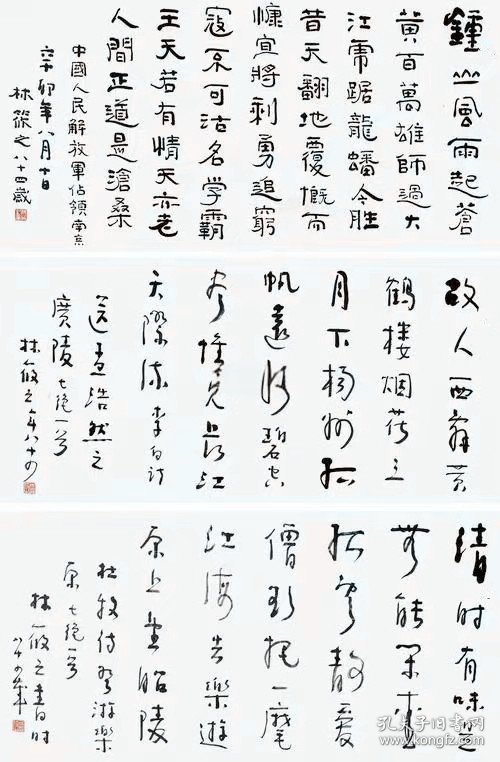 鍾山風雨起蒼
黃百萬雄師過大
江虎踞龍蟠今勝
昔天翻地覆慨而
慷宜將剩勇追窮
寇不可沽名学霸
王天若有情天亦老
人間正道是滄桑
中國人民解放軍佔領南京
辛卯年八月十日
林筱之八十四歲
故人西辞黄
鶴楼烟花三
月下揚州孤
帆遠影碧空
尽惟見長江
天際流李白詩
送孟浩然之
廣陵七絕一首
林筱之年八十四
清时有味是
無能閑愛
孤雲静爱
僧欲把一麾
江海去樂遊
原上望昭陵
杜牧詩登游樂
原七絕一首
林筱之書时
孔夫子旧书网
www.kongfz.com